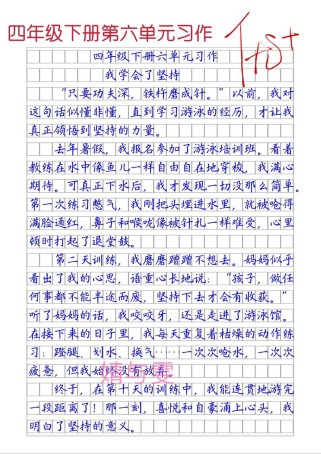 四年级下册第六单元习作
优+
四年级下册六单元习作
我学会了坚持
“只要功夫深，铁杵磨成针。”以前，我对
这句话似懂非懂，直到学习游泳的经历，才让我
真正领悟到坚持的力量。
去年暑假，我报名参加了游泳培训班。看着
教练在水中像鱼儿一样自由自在地穿梭，我满心
期待。可真正下水后，我才发现一切没那么简单。
第一次练习憋气，我刚把头埋进水里，就被呛得
满脸通红，鼻子和喉咙像被针扎一样难受，心里
顿时打起了退堂鼓。
第二天训练，我磨磨蹭蹭不想去。妈妈似乎
看出了我的心思，语重心长地说：“孩子，做任
何事都不能半途而废，坚持下去才会有收获。”
听了妈妈的话，我咬咬牙，还是走进了游泳馆。
在接下来的日子里，我每天重复着枯燥的动作练
习：蹬腿、划水、换气……一次次呛水，一次次
疲惫，但我始终没有放弃。
终于，在第十天的训练中，我能连贯地游完
一段距离了！那一刻，喜悦和自豪涌上心头，我
明白了坚持的意义。